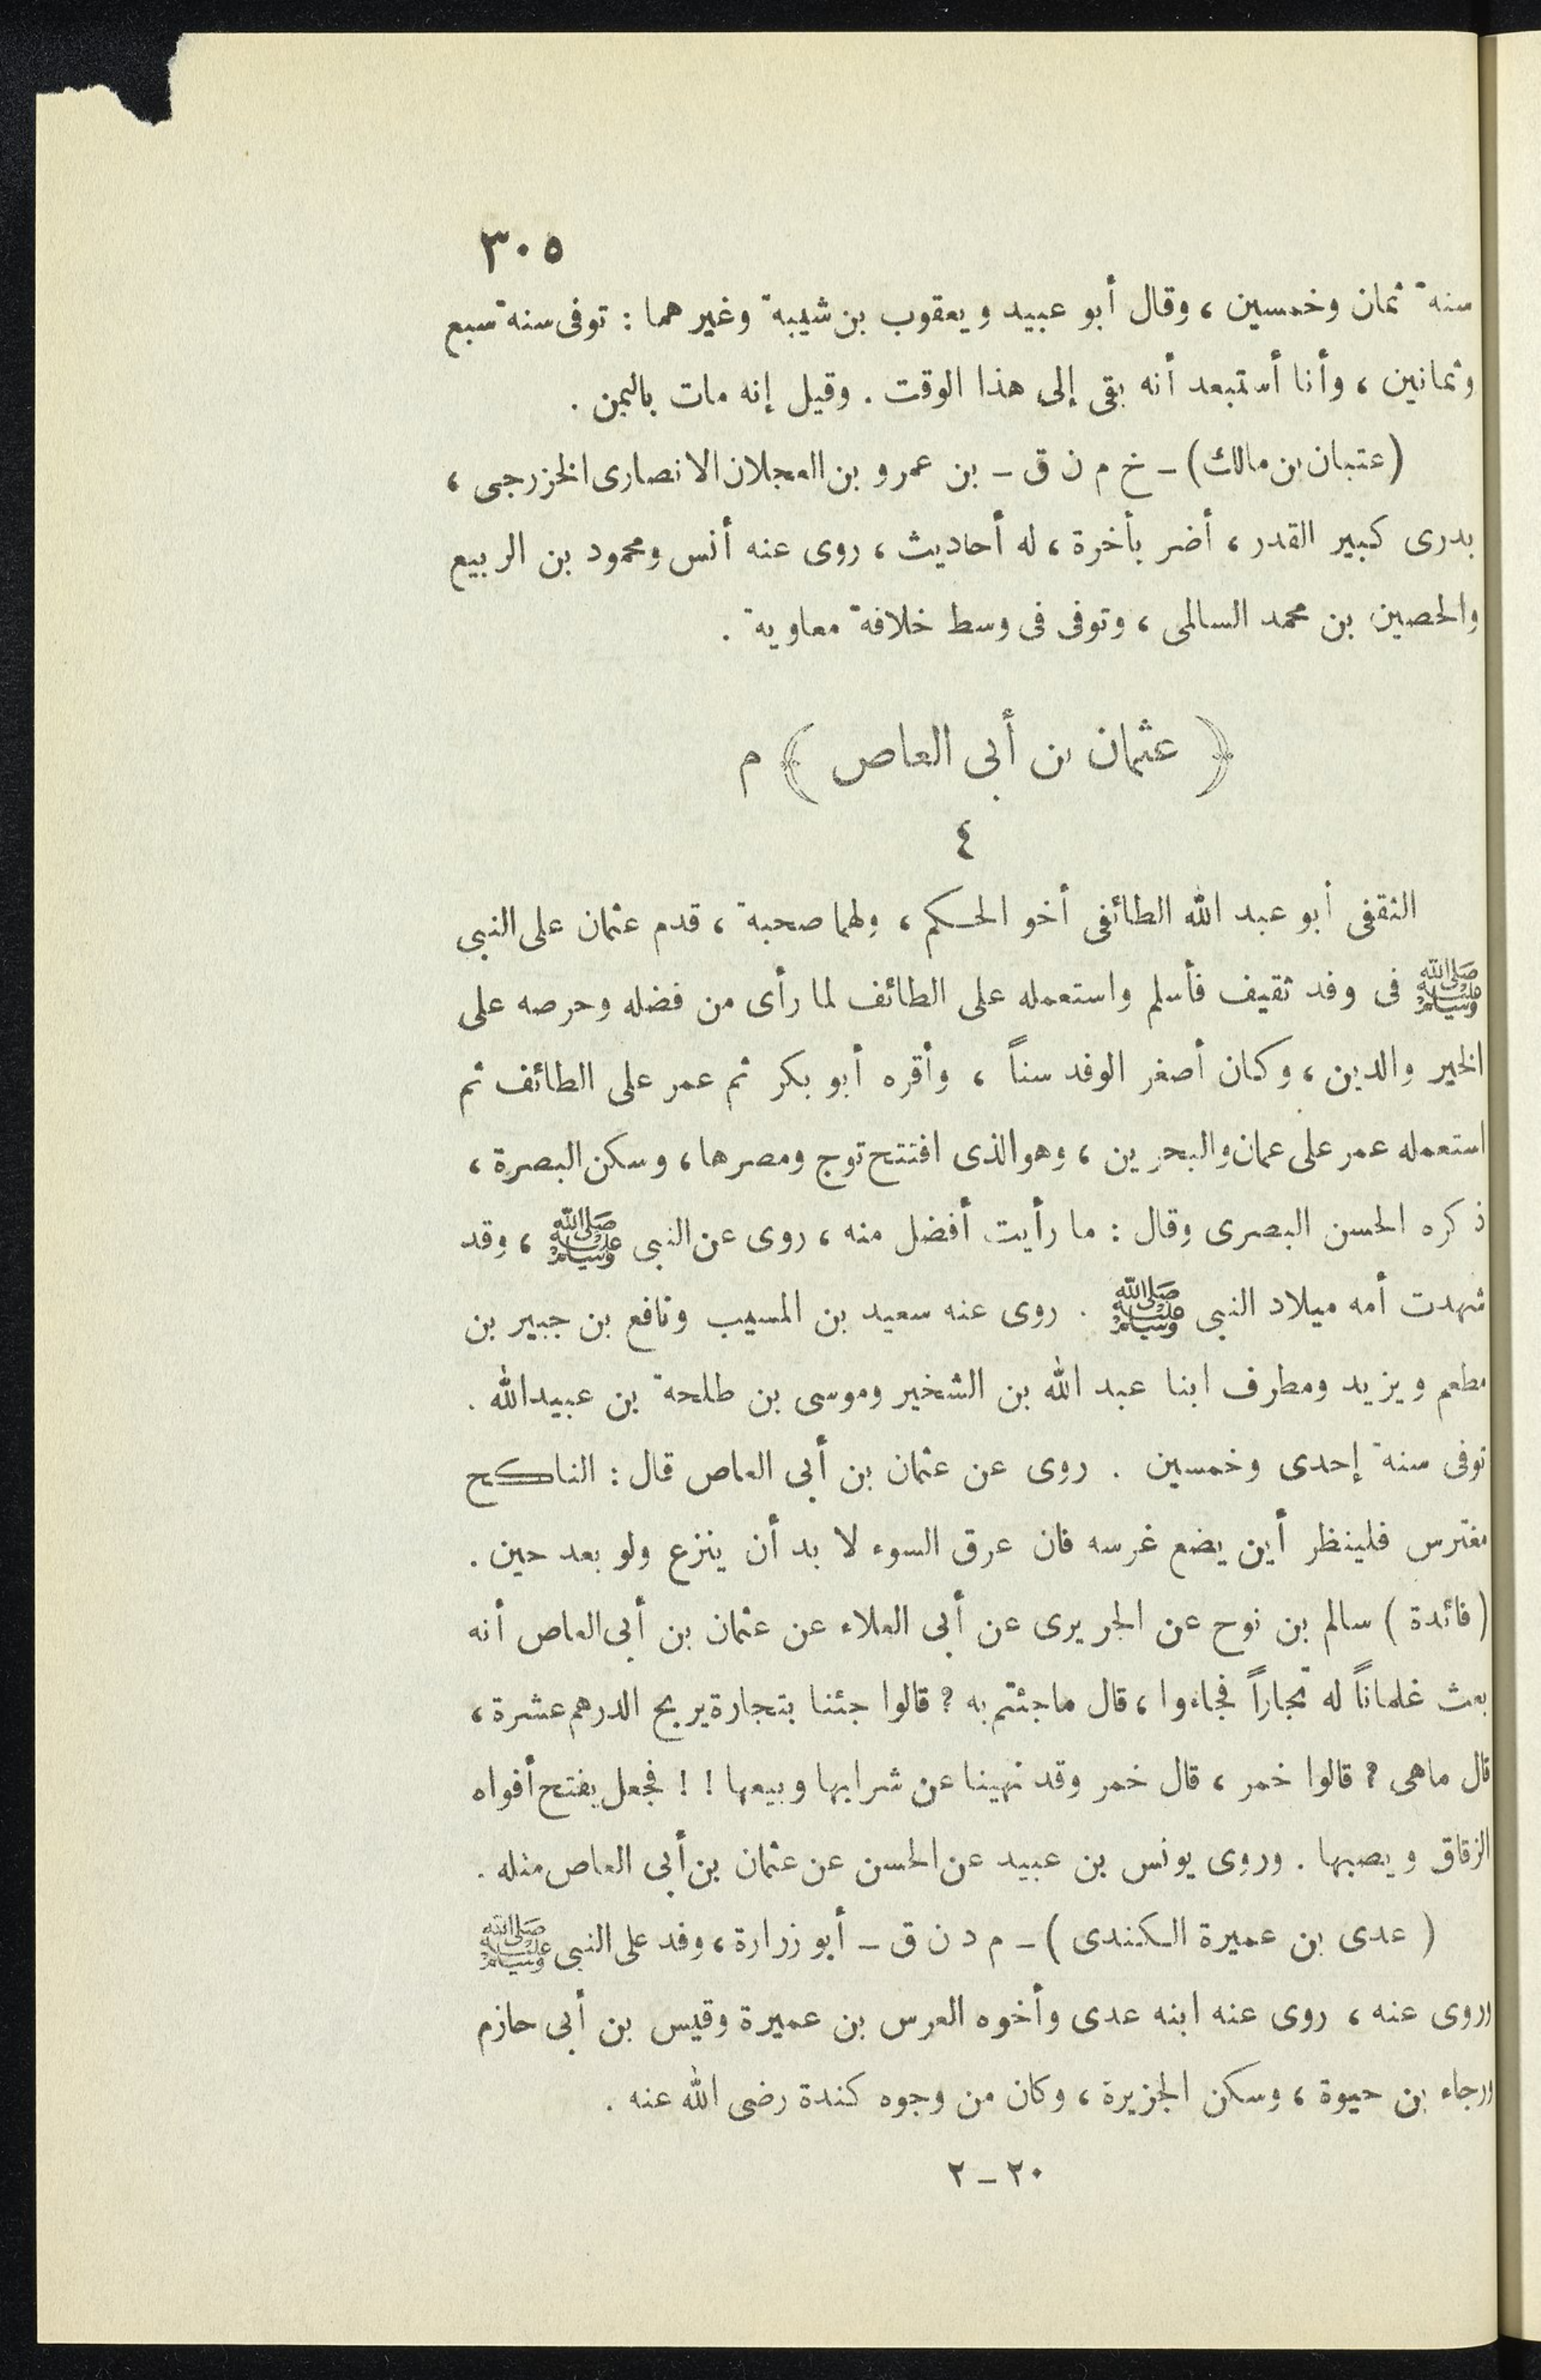 ٣٠٥
سنة ثمان وخمسين ، وقال أبو عبيد ويعقوب بن شيبة وغيرهما : توفى سنة سبع
وثمانين ، وأنا أستبعد أنه بقى إلى هذا الوقت . وقيل إنه مات باليمن .
(عتبان بن مالك) - خ م ن ق - بن عمرو بن العجلان الانصارى الخزرجى ،
بدرى كبير القدر ، أضر بأخرة ، له أحاديث ، روى عنه أنس ومحمود بن الربيع
والحصين بن محمد السالمى ، وتوفى فى وسط خلافة معاوية .
﴿ عثمان بن أبى العاص ﴾ م
٤
الثقفى أبو عبد الله الطائفى أخو الحكم ، ولهما صحبة ، قدم عثمان على النبى
ﷺ فى وفد ثقيف فأسلم واستعمله على الطائف لما رأى من فضله وحرصه على
الخير والدين ، وكان أصغر الوفد سناً ، وأقره أبو بكر ثم عمر على الطائف ثم
استعمله عمر على عمان والبحرين ، وهو الذى افتتح توج ومصرها ، وسكن البصرة ،
ذكره الحسن البصرى وقال : ما رأيت أفضل منه ، روى عن النبى ﷺ ، وقد
شهدت أمه ميلاد النبى ﷺ . روى عنه سعيد بن المسيب ونافع بن جبير بن
مطعم ويزيد ومطرف ابنا عبد الله بن الشخير وموسى بن طلحة بن عبيدالله .
توفى سنة إحدى وخمسين . روى عن عثمان بن أبى العاص قال : الناكح
مغترس فلينظر أين يضع غرسه فان عرق السوء لا بد أن ينزع ولو بعد حين .
(فائدة) سالم بن نوح عن الجريرى عن أبى العلاء عن عثمان بن أبى العاص أنه
بعث غلماناً له تجاراً فجاءوا ، قال ماجئتم به ؟ قالوا جئنا بتجارة يربح الدرهم عشرة ،
قال ماهى ؟ قالوا خمر ، قال خمر وقد نهينا عن شرابها وبيعها ! ! فجعل يفتح أفواه
الزقاق ويصبها . وروى يونس بن عبيد عن الحسن عن عثمان بن أبى العاص مثله .
( عدى بن عميرة الكندى ) - م د ن ق - أبو زرارة ، وفد على النبى ﷺ
وروى عنه ، روى عنه ابنه عدى وأخوه العرس بن عميرة وقيس بن أبى حازم
ورجاء بن حيوة ، وسكن الجزيرة ، وكان من وجوه كندة رضى الله عنه .
٢٠ - ٢